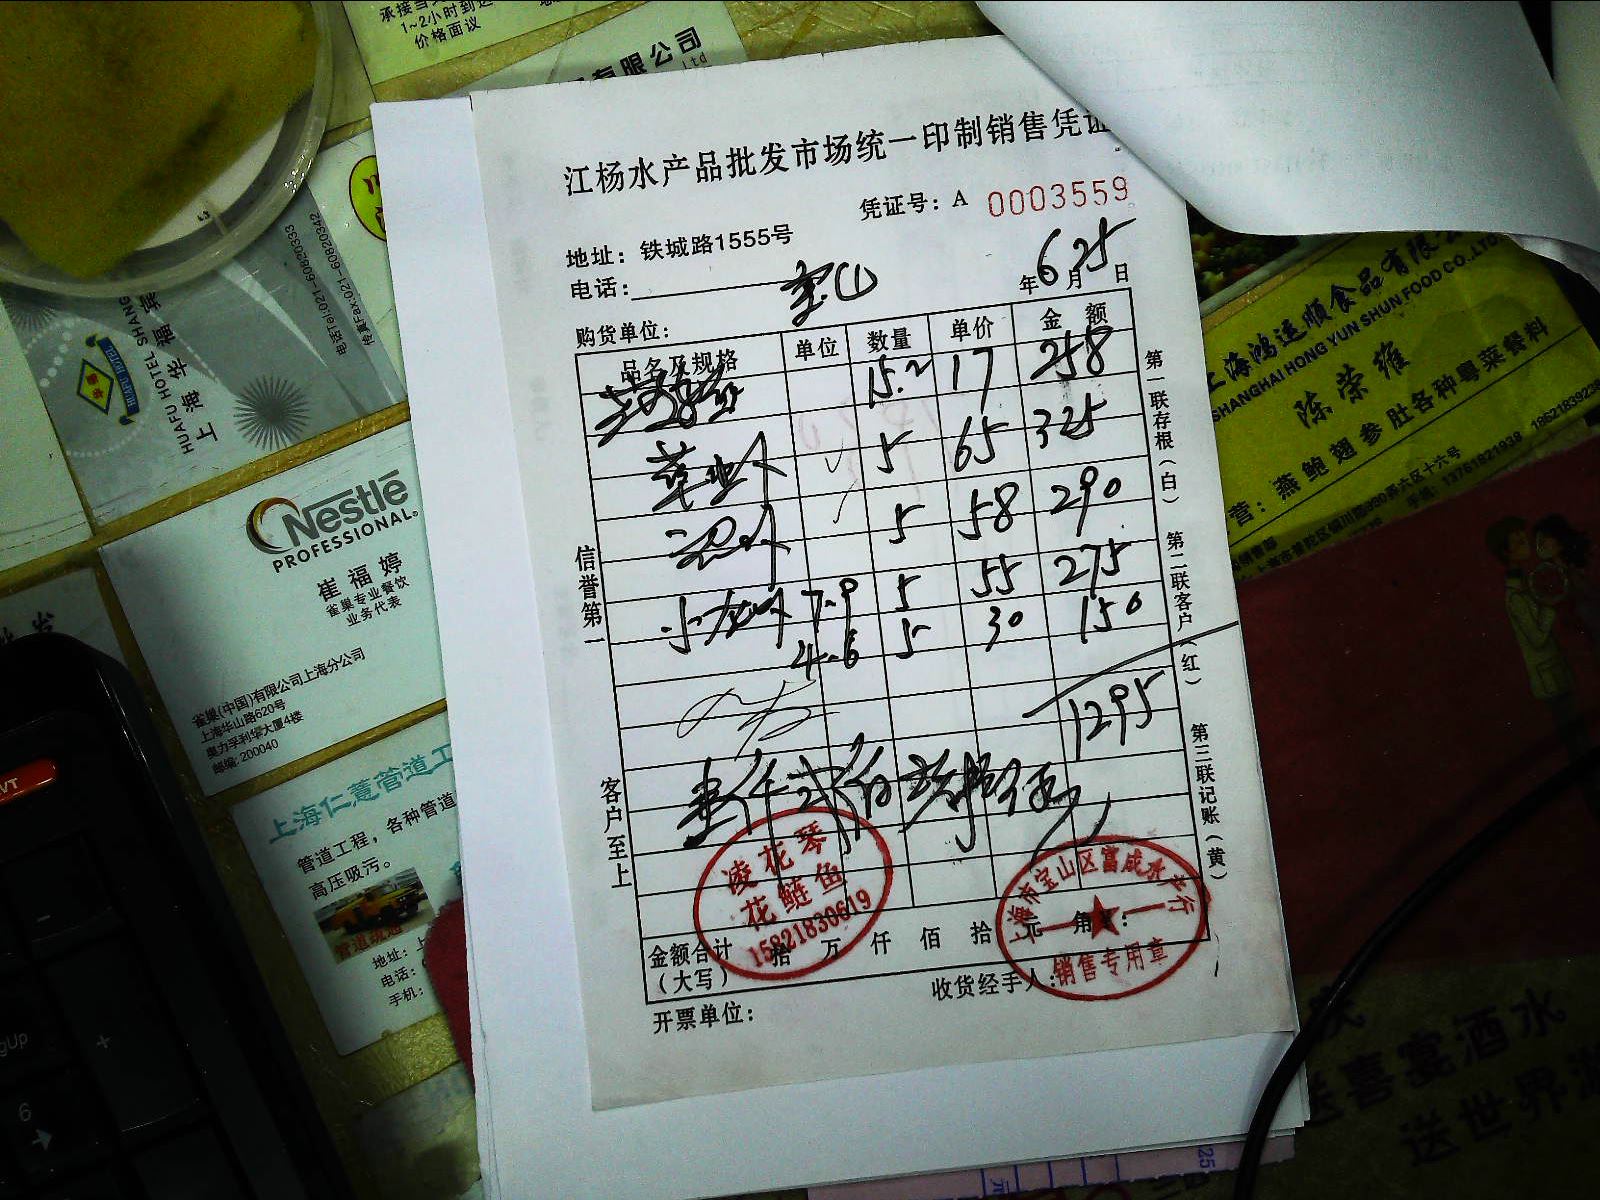 承接当
1~2小时到达
价格面议
有限公司
Ltd
江杨水产品批发市场统一印制销售凭证
凭证号: A 0003559
地址: 铁城路1555号
电话:
年 6 月 25 日
购货单位: 宝山
品名及规格 单位 数量 单价 金 额
15.2 17 258
草虾 5 65 325
5 58 290
小龙虾 7-9 5 55 275
4-6 5 30 150
1295
壹仟贰佰玖拾伍
信誉第一
客户至上
第一联存根(白) 第二联客户(红) 第三联记账(黄)
凌花琴
花鲢鱼
15821830619
上海市宝山区富成水产行
销售专用章
金额合计
(大写)
拾 万 仟 佰 拾 元 角
收货经手人:
开票单位:
电话Tel:021-60820333
传真Fax:021-60820342
HUAFU HOTEL SHANG
上海华
HUAFU HOTEL
Nestlé
PROFESSIONAL.
崔福婷
雀巢专业餐饮
业务代表
雀巢(中国)有限公司上海分公司
上海华山路620号
奥力孚利华大厦4楼
邮编: 200040
上海仁薏管道工
管道工程，各种管道
高压吸污。
管道疏通
地址: 上
电话:
手机:
上海鸿运顺食品有限
SHANGHAI HONG YUN SHUN FOOD CO.,LTD.
陈荣雄
营: 燕鲍翅参肚各种粤菜餐料
送喜宴酒水
送世界
gUp
6
25
元